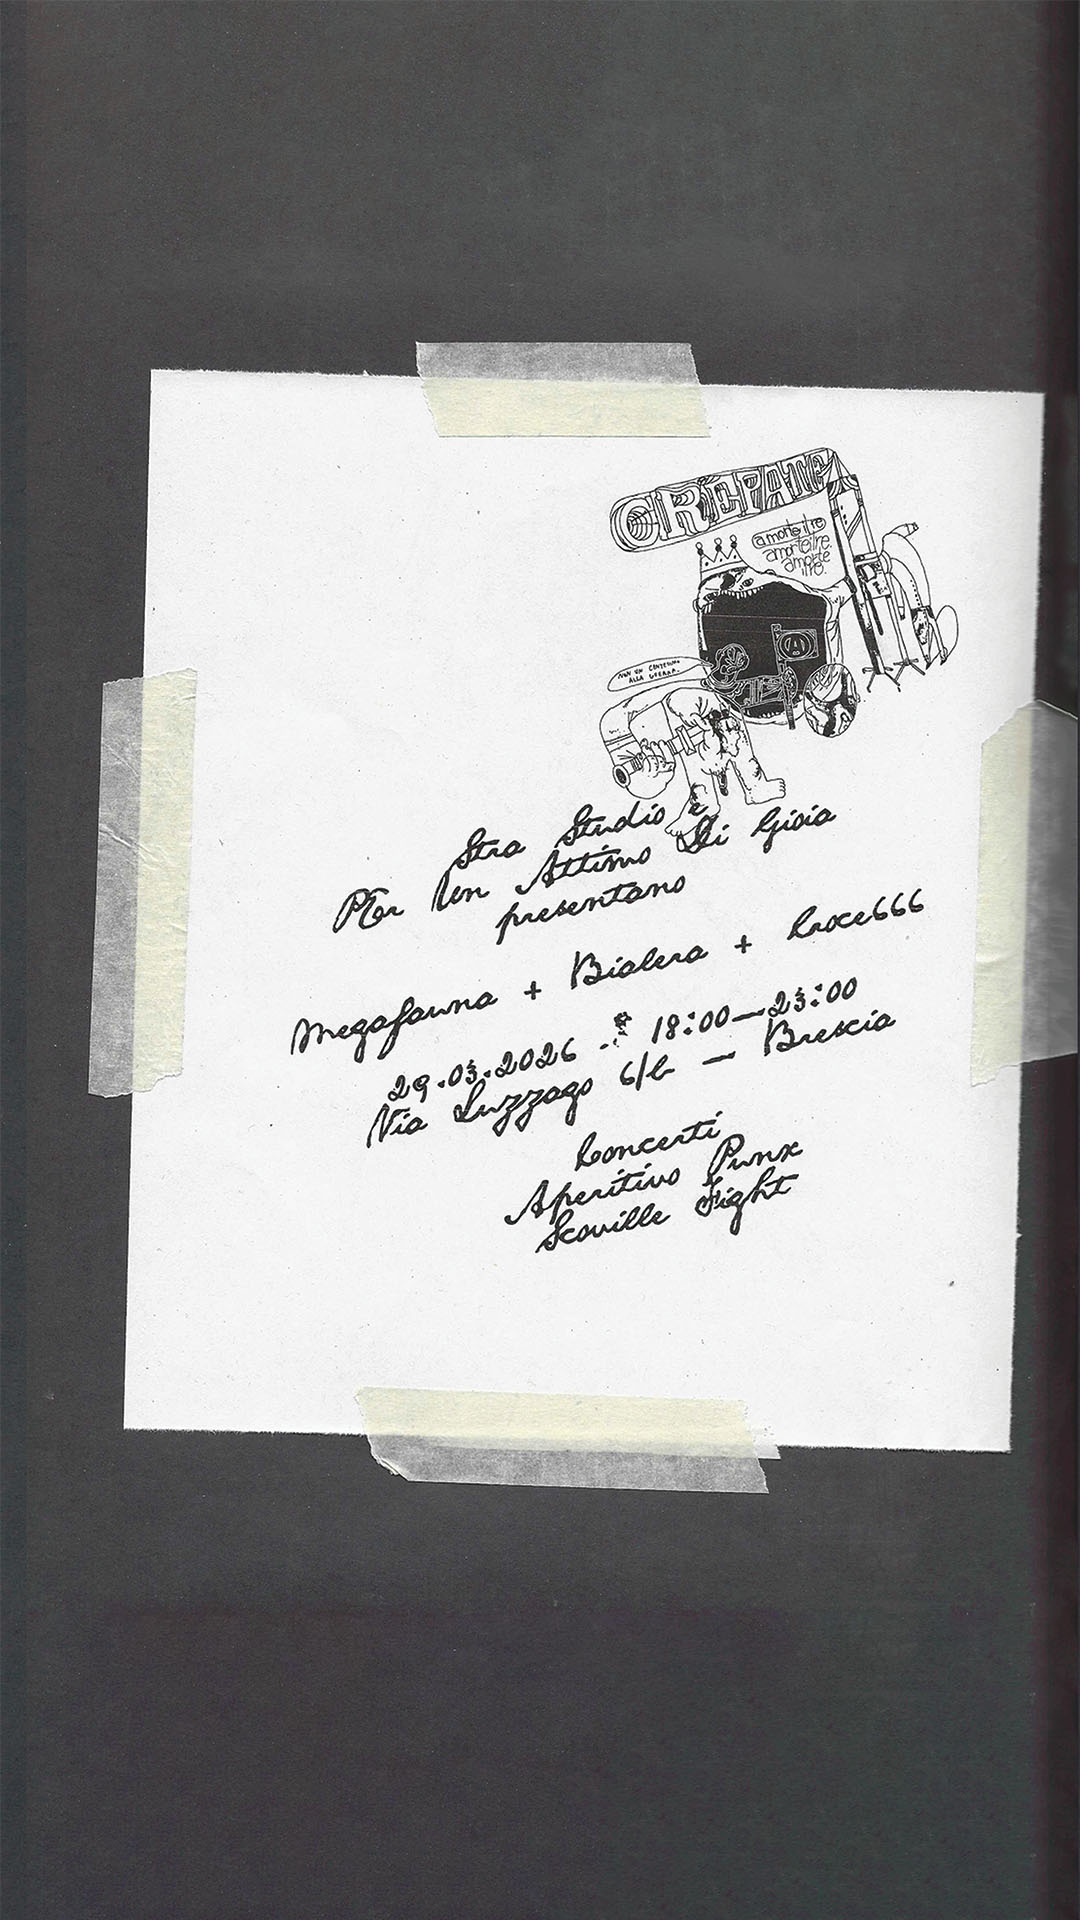 CREPATE
a morte il re
a morte il re
a morte
il re.
NON UN CENTESIMO
ALLA GUERRA.
Stra Studio e
PEr Un Attimo Di Gioia
presentano
Megafauna + Bialera + Croce666
29.03.2026 18:00—23:00
Via Luzzago 6/b — Brescia
Concerti
Aperitivo Punx
Scoville Fight